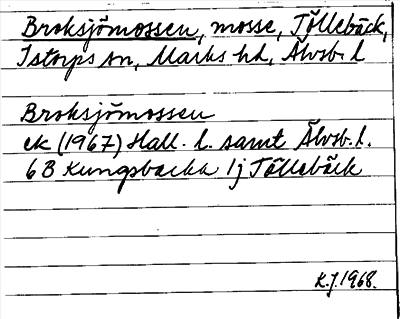 Broksjömossen, mosse, Töllebäck,
Istorps sn, Marks hd, Älvsb. l
Broksjömossen
ek (1967) Hall. l. samt Älvsb. l.
6B Kungsbacka 1j Töllebäck
K.J. 1968.